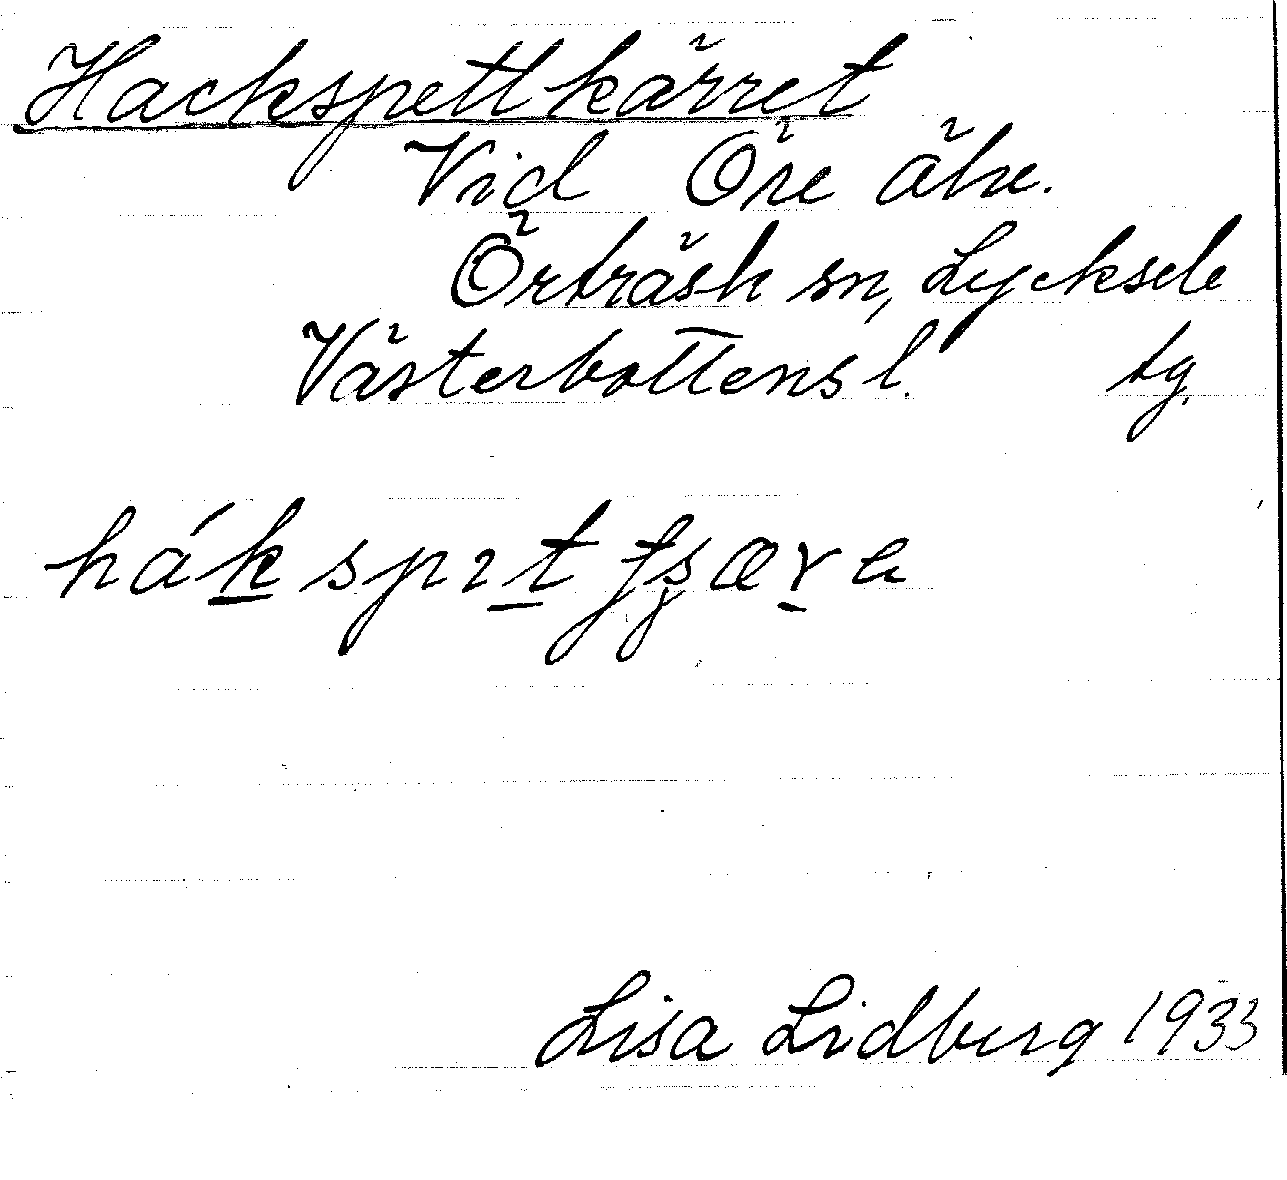 Hackspettkärret
Vid Öre älv.
Örträsk sn, Lycksele
Västerbottens l. tg.
Lisa Lidberg 1933